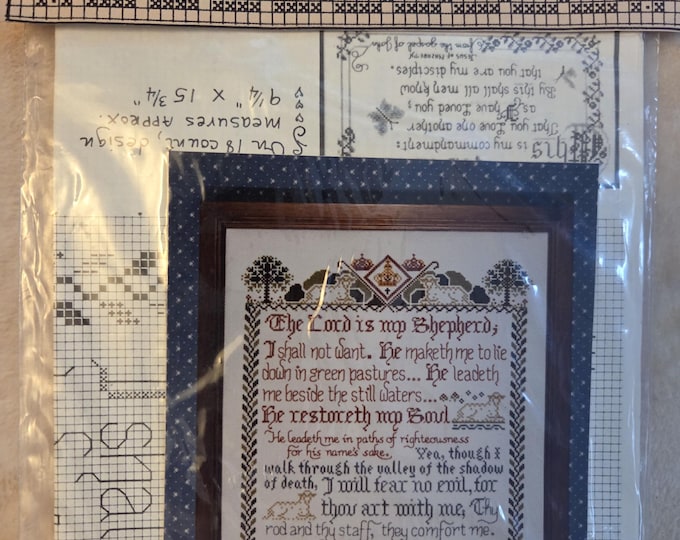 This is my commandment:
That you Love one another
as I have Loved you;
By this shall all men know
that you are my disciples.
from the gospel of John
On 18 count, design
measures approx.
9¼" X 15¾"
The Lord is my Shepherd;
I shall not want. He maketh me to lie
down in green pastures... He leadeth
me beside the still waters...
He restoreth my Soul
He leadeth me in paths of righteousness
for his name's sake. Yea, though I
walk through the valley of the shadow
of death, I will fear no evil, for
thou art with me; Thy
rod and thy staff, they comfort me.